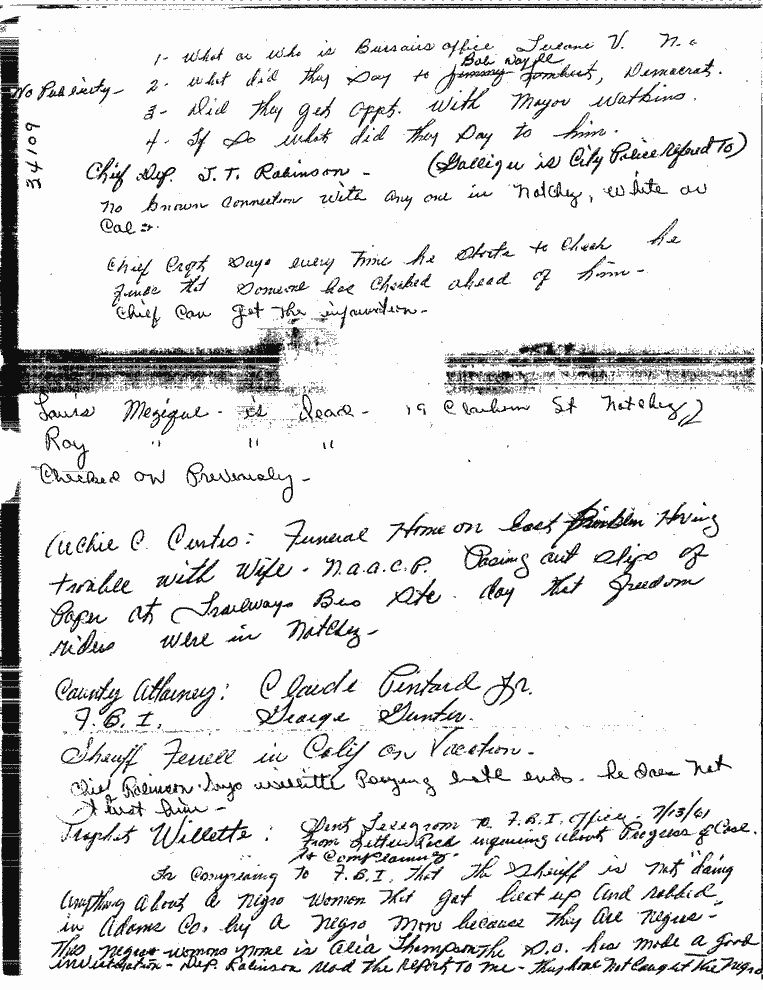 1- What or who is Bursairs office Tulane V. N.O.
Bob Waffle
No Publicity - 2- what did they Say to Jimmy Lombert, Democrat.
3- Did they get appt. with Mayor Watkins.
4- If So what did they Say to him.
34109
Chief Dep. J.T. Robinson - (Galligu is City Police refered To)
no known connection with any one in Natchez, white or
Col.
Chief Craft Says every time he starts to check he
finds that someone has checked ahead of him -
Chief Can get the information -
Louis Mezique - is dead - 19 Claiborn St Natchez
Roy " " "
Checked on Previously -
Archie C. Curtis: Funeral Home on East Having
trouble with wife - N.A.A.C.P. Passing out slips of
Paper at Trailways Bus Sta. day that freedom
riders were in Natchez -
County Attorney: Claude Pintard Jr.
F.B.I. George Gunter.
Sheriff Ferrell in Calif on Vacation -
Chief Robinson Says willette Playing both ends - he does not
trust him -
Prophet Willette: Sent Telegrom to F.B.I. Office 7/13/61
from Little Rock inquiring about Progress of Case.
Is Complaining
to F.B.I. that the Sheriff is not "doing
anything about a negro women that got beat up and robbed
in Adams Co. by a negro man because they are negros -
This negro womons name is Alia Thompson the S.O. has made a good
investigation - Dep. Robinson read the report to me - they have not caught the negro